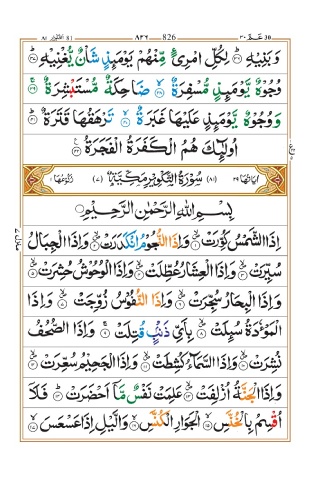 عـمّ ٣٠ 826 ٨٢٦ التكوير ٨١
وَبَنِيْهِ ۝٣٦ لِكُلِّ امْرِئٍ مِّنْهُمْ يَوْمَىِٕذٍ شَاْنٌ يُّغْنِيْهِ ۝٣٧
وُجُوْهٌ يَّوْمَىِٕذٍ مُّسْفِرَةٌ ۝٣٨ ضَاحِكَةٌ مُّسْتَبْشِرَةٌ ۝٣٩
وَوُجُوْهٌ يَّوْمَىِٕذٍ عَلَيْهَا غَبَرَةٌ ۝٤٠ تَرْهَقُهَا قَتَرَةٌ ۝٤١
اُولٰٓىِٕكَ هُمُ الْكَفَرَةُ الْفَجَرَةُ ۝٤٢
اٰيَاتُهَا ٢٩ (٨١) سُوْرَةُ التَّكْوِيْرِ مَكِّيَّةٌ (٧) رُكُوْعُهَا ١
بِسْمِ اللّٰهِ الرَّحْمٰنِ الرَّحِيْمِ
اِذَا الشَّمْسُ كُوِّرَتْ ۝١ وَاِذَا النُّجُوْمُ انْكَدَرَتْ ۝٢ وَاِذَا الْجِبَالُ
سُيِّرَتْ ۝٣ وَاِذَا الْعِشَارُ عُطِّلَتْ ۝٤ وَاِذَا الْوُحُوْشُ حُشِرَتْ ۝٥
وَاِذَا الْبِحَارُ سُجِّرَتْ ۝٦ وَاِذَا النُّفُوْسُ زُوِّجَتْ ۝٧ وَاِذَا
الْمَوْءٗدَةُ سُىِٕلَتْ ۝٨ بِاَيِّ ذَنْۢبٍ قُتِلَتْ ۝٩ وَاِذَا الصُّحُفُ
نُشِرَتْ ۝١٠ وَاِذَا السَّمَآءُ كُشِطَتْ ۝١١ وَاِذَا الْجَحِيْمُ سُعِّرَتْ ۝١٢
وَاِذَا الْجَنَّةُ اُزْلِفَتْ ۝١٣ عَلِمَتْ نَفْسٌ مَّآ اَحْضَرَتْ ۝١٤ فَلَآ
اُقْسِمُ بِالْخُنَّسِ ۝١٥ الْجَوَارِ الْكُنَّسِ ۝١٦ وَالَّيْلِ اِذَا عَسْعَسَ ۝١٧